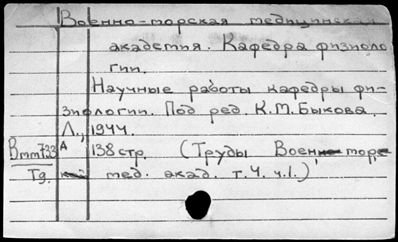 Военно-морская медицинская
академия. Кафедра физиоло
гии.
Научные работы кафедры фи-
зиологии. Под ред. К.М. Быкова.
Л., 1944.
Вmm733 А 138 стр. (Труды Военно-морс
Tg. кой мед. акад. т.4. ч.1.)